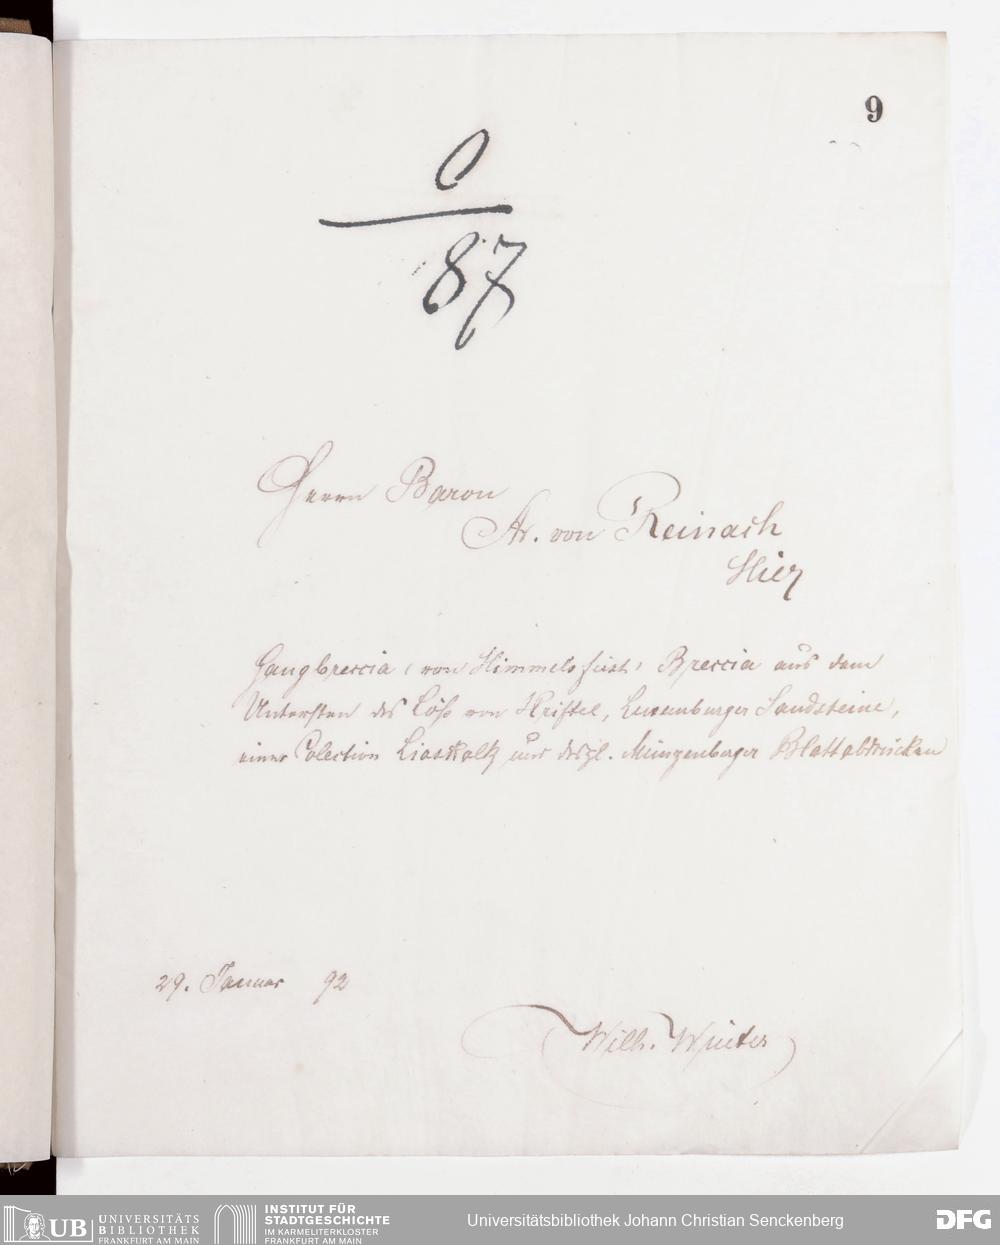 9
0
87
Herrn Baron
Ar. von Reinach
Hier
Gangbreccia (von Himmelsfürst) Breccia aus dem
Untersten des Löß von Kriftel, Luxemburger Sandsteine,
einer Colection Liaskalk und dergl. Münzenberger Blattabdrücken
29. Januar 92
Wilh. Winter
UB UNIVERSITÄTS
BIBLIOTHEK
FRANKFURT AM MAIN
INSTITUT FÜR
STADTGESCHICHTE
IM KARMELITERKLOSTER
FRANKFURT AM MAIN
Universitätsbibliothek Johann Christian Senckenberg
DFG